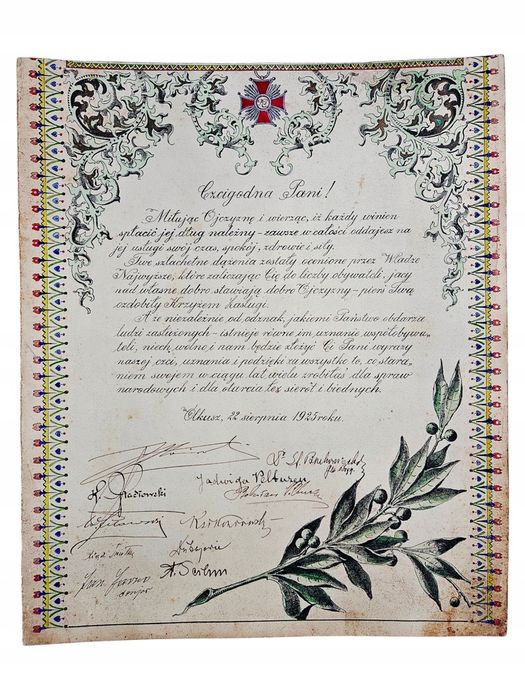 Czcigodna Pani!
Miłując Ojczyznę i wierząc, iż każdy winien
spłacić jej dług należny - zawsze w całości oddajesz na
jej usługi swój czas, spokój, zdrowie i siły.
Twe szlachetne dążenia zostały ocenione przez Władze
Najwyższe, które zaliczając Cię do liczby obywateli, jacy
nad własne dobro stawiają dobro Ojczyzny - pierś Twą
ozdobiły Krzyżem Zasługi.
A że niezależnie od odznak, jakiemi Państwo obdarza
ludzi zasłużonych - istnieje równe im uznanie współobywa-
teli, niech wolno i nam będzie złożyć Ci Pani wyrazy
naszej czci, uznania i podzięki za wszystko to, co stara-
niem swojem w ciągu lat wielu zrobiłaś dla spraw
narodowych i dla otarcia łez sierót i biednych.
Olkusz, 22 sierpnia 1925 roku.
Jadwiga